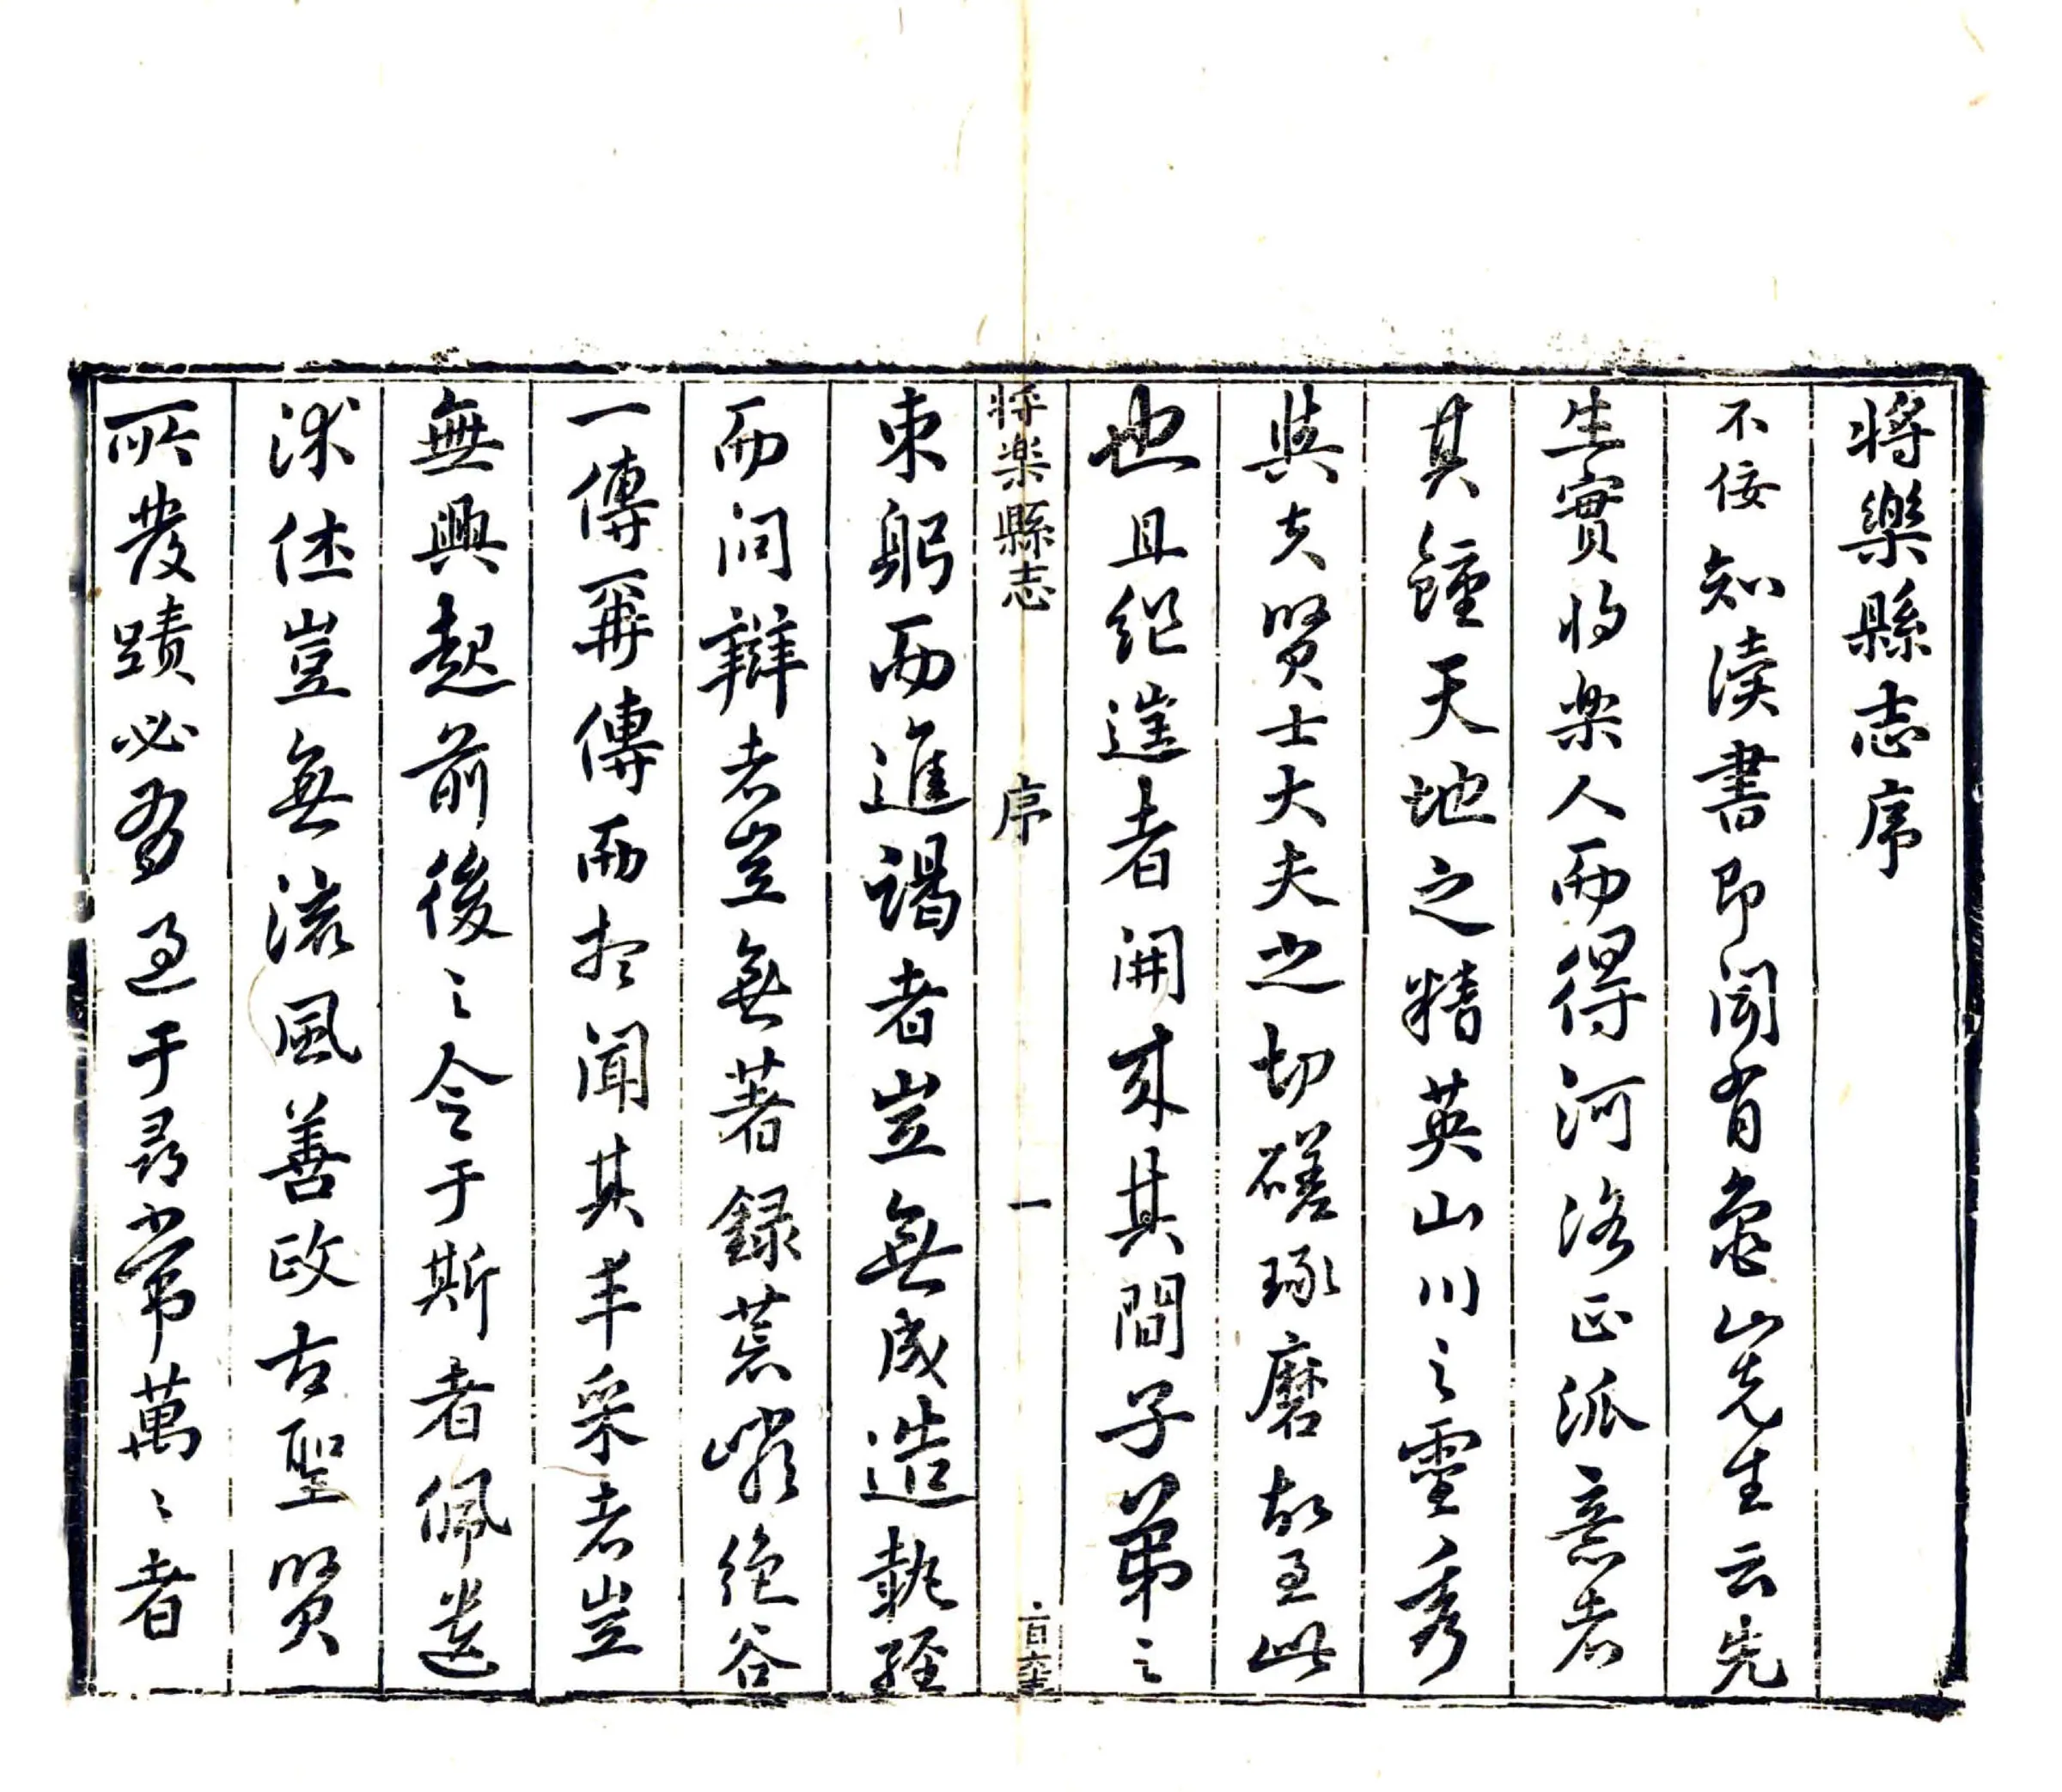 將樂縣志序
不佞知讀書即聞有龜山先生云先
生實將樂人而得河洛正派意者
其鍾天地之精英山川之靈秀
與夫賢士大夫之切磋琢磨故至此
也且繼道者開來其間子弟之
將樂縣志 序 一
束躬而進謁者豈無成造執經
而问辯者豈無著錄荒巖絕谷
一傳再傳而於聞其丰采者豈
無興起前後之令于斯者佩遺
泳俗豈無流風善政古聖賢
所發蹟必多過于尋常萬〻者